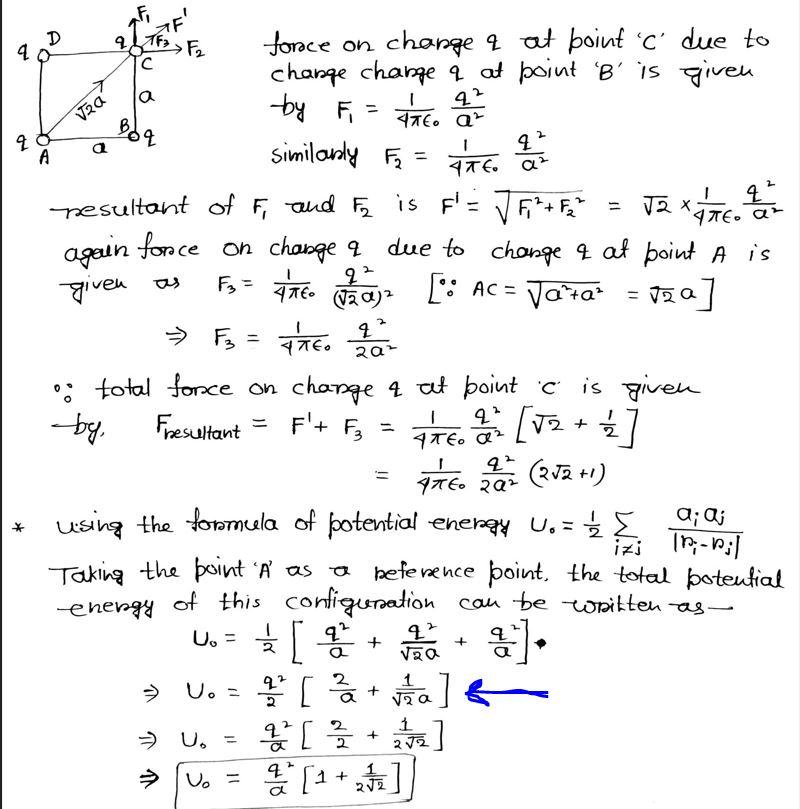 F₁ F'
D q F₃ F₂
q C
√2a a
B
q A a q
force on charge q at point 'C' due to
charge charge q at point 'B' is given
by F₁ = 1/4πε₀ q²/a²
similarly F₂ = 1/4πε₀ q²/a²
resultant of F₁ and F₂ is F' = √F₁²+F₂² = √2 × 1/4πε₀ q²/a²
again force on charge q due to charge q at point A is
given as F₃ = 1/4πε₀ q²/(√2a)² [∵ AC = √a²+a² = √2a]
⇒ F₃ = 1/4πε₀ q²/2a²
∴ total force on charge q at point 'C' is given
by, Fresultant = F' + F₃ = 1/4πε₀ q²/a² [√2 + 1/2]
= 1/4πε₀ q²/2a² (2√2+1)
* using the formula of potential energy U₀ = 1/2 Σ i≠j qᵢqⱼ/|rᵢ-rⱼ|
Taking the point 'A' as a reference point, the total potential
energy of this configuration can be written as—
U₀ = 1/2 [q²/a + q²/√2a + q²/a].
⇒ U₀ = q²/2 [2/a + 1/√2a]
⇒ U₀ = q²/a [2/2 + 1/2√2]
⇒ U₀ = q²/a [1 + 1/2√2]